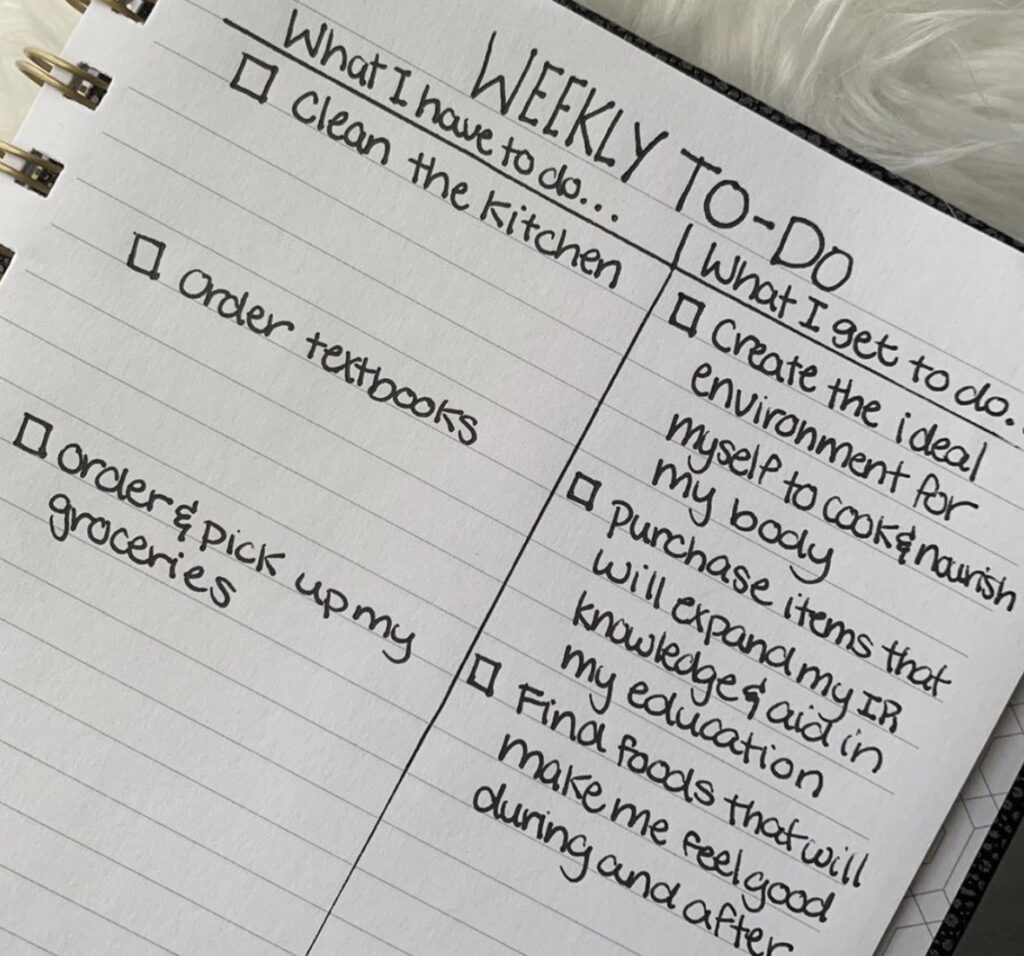 WEEKLY TO-DO
What I have to do...
Clean the Kitchen
Order textbooks
Order & pick up my
groceries
What I get to do..
Create the ideal
environment for
myself to cook & nourish
my body
Purchase items that
will expand my IR
knowledge & aid in
my education
Find foods that will
make me feel good
during and after